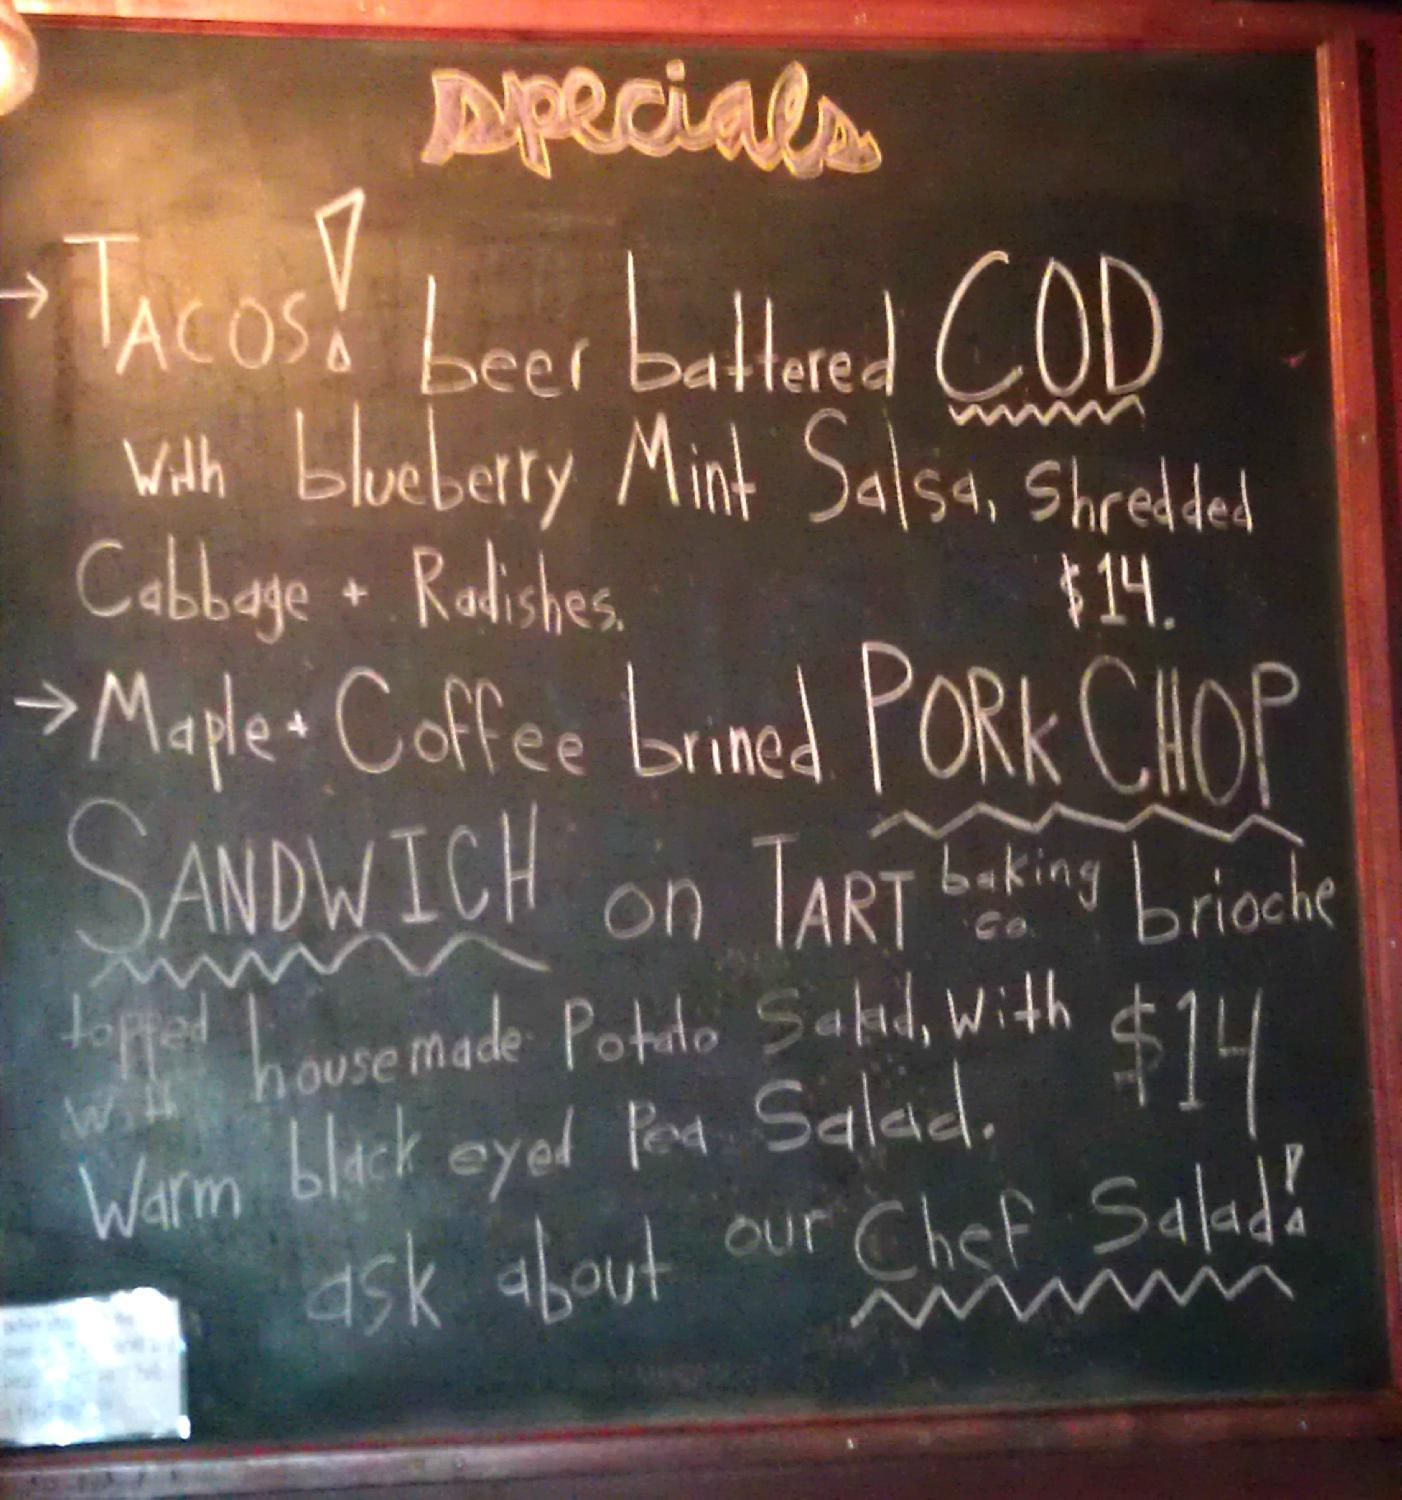 specials
→ TACOS! beer battered COD
With blueberry Mint Salsa, Shredded
Cabbage + Radishes. $14.
→ Maple + Coffee brined PORK CHOP
SANDWICH on TART baking co. brioche
topped with housemade Potato Salad, With $14
Warm black eyed Pea Salad.
ask about our Chef Salad!